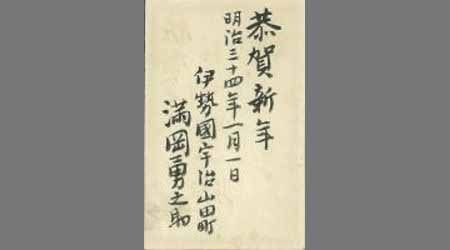 恭賀新年
明治三十四年一月一日
伊勢國宇治山田町
満岡勇之助